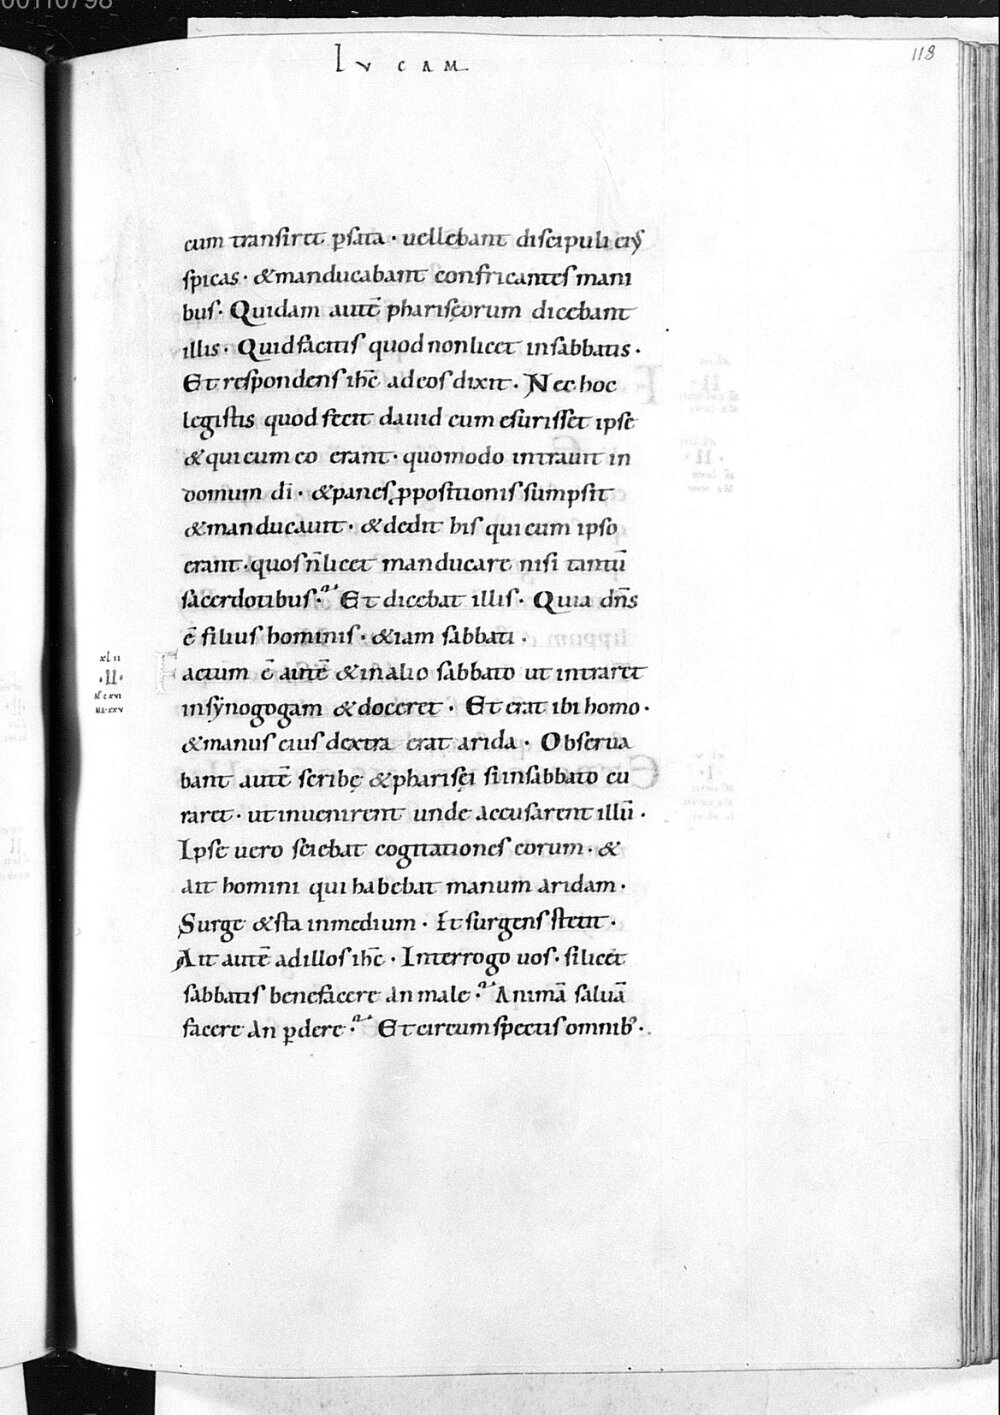 00110798
LVCAM
118
cum transiret ꝑsata · uellebant discipuli eiꝰ
spicas · & manducabant confricantes mani
bus · Quidam autē pharisęorum dicebant
illis · Quid facitis quod non licet in sabbatis ·
Et respondens ihc̄ ad eos dixit · Nec hoc
legistis quod fecit dauid cum esurisset ipse
& qui cum eo erant · quomodo intrauit in
domum dī · & panes ꝓpositionis sumpsit
& manducauit · & dedit his qui cum ipso
erant · quos n̄ licet manducare nisi tantū
sacerdotibus? Et dicebat illis · Quia dn̄s
ē filius hominis · & iam sabbati ·
xlii
·II·
Mͭ cxvi
Mr xxv
Factum ē autē & in alio sabbato ut intraret
in synogogam & doceret · Et erat ibi homo ·
& manus eius dextra erat arida · Obserua
bant autē scribę & pharisęi si in sabbato cu
raret · ut inuenirent unde accusarent illū ·
Ipse uero sciebat cogitationes eorum · &
ait homini qui habebat manum aridam ·
Surge & sta in medium · Et surgens stetit ·
Ait autē ad illos ihc̄ · Interrogo uos · si licet
sabbatis benefacere an male? Animā saluā
facere an ꝑdere? Et circumspectis omnibꝰ ·